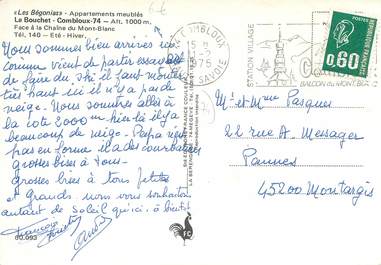 «Les Bégonias» - Appartements meublés
Le Bouchet - Combloux-74 - Alt. 1000 m.
Face à la Chaîne du Mont-Blanc
Tél. 140 - Eté - Hiver.
Nous sommes bien arrivés ici
comme vient de partir essayant
de faire du ski il faut monter
très haut ici il n'y a pas de
neige. Nous sommes allés à
la côte 2000m hier là il y a
beaucoup de neige. Papa n'est
pas en forme il a des courbatures
grosses bises à tous -
Grosses bises à tous petits
et Grands nous vous souhaitons
autant de soleil qu'ici, à bientôt
François
80.093
COMBLOUX
1975
SAVOIE
STATION VILLAGE
BALCON du MONT-BLANC
0,60
Mr et Mme Pasques
22 rue A. Messager
Pannes
45200 Montargis